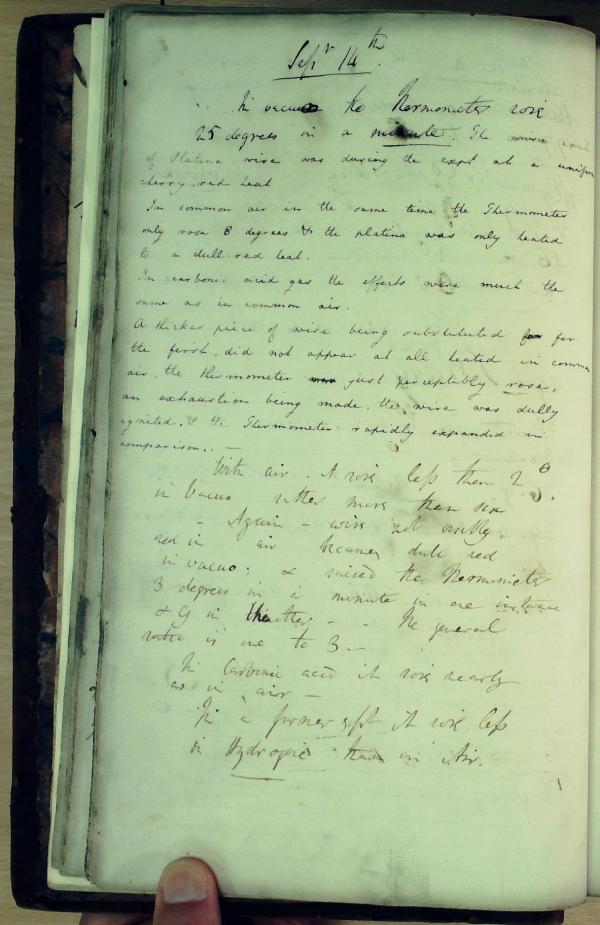 Sepr 14th.
In vacuo the Thermometer rose
25 degrees in a minute. The
of Platina wire was during the expt at a uniform
cherry red heat
In common air in the same time the Thermometer
only rose 8 degrees & the platina was only heated
to a dull red heat.
In carbonic acid gas the effects were much the
same as in common air.
A thicker piece of wire being substituted for
the first, did not appear at all heated in common
air, the thermometer just perceptibly rose,
an exhaustion being made, the wire was dully
ignited, & the Thermometer rapidly expanded in
comparison. —
With air. it rose less than 2°
in vacuo rather more than six
- Again - wire not visibly
red in air became dull red
in vacuo; & raised the Thermometer
3 degrees in a minute in one instance
& 9 in the other - - The general
ratio is one to 3. -
In Carbonic acid it rose nearly
as in air -
In a former expt it rose less
in Hydrogene than in Air.